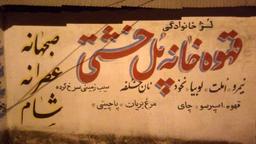 لژ خانوادگی
قهوه خانه پل خشتی
صبحانه
عصرانه
شام
نیمرو، املت، لوبیا، نخود، نان خلفه
سیب زمینی سرخ کرده
قهوه اسپرسو، چای
مرغ بریان (پاچینی)